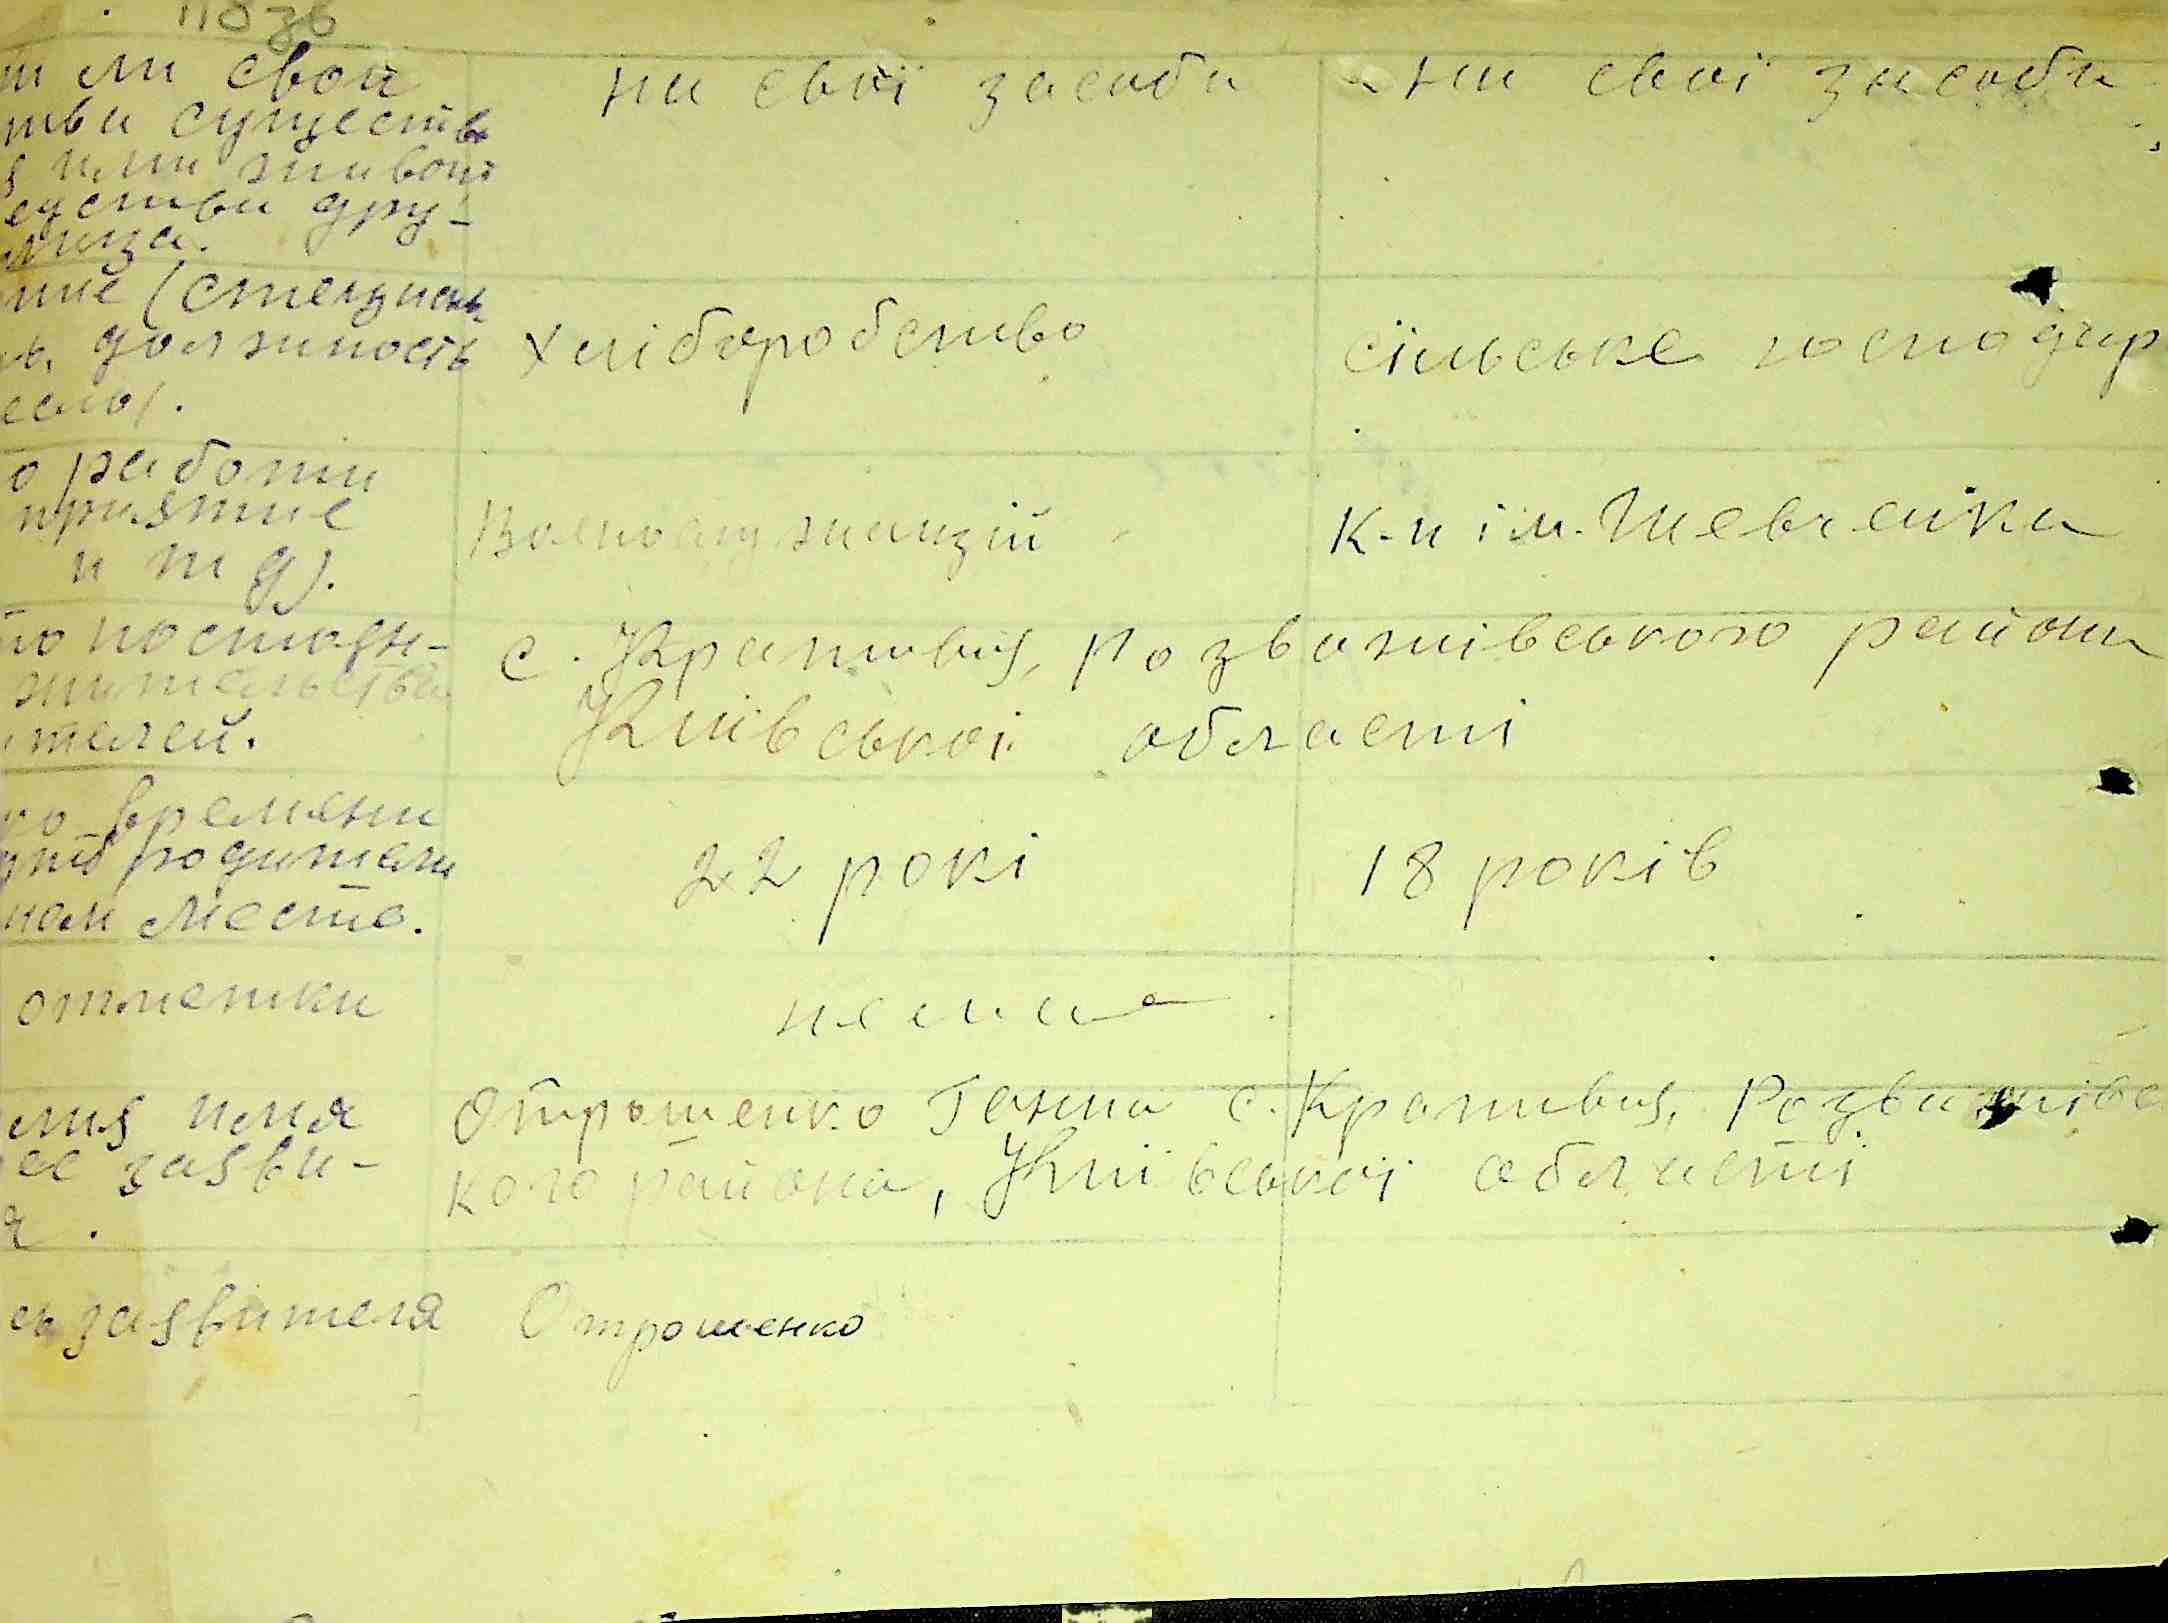 ли свои
тва существ
или живот
едства дру-
лица.
на свої засоби
на свої засоби
(специаль
должность
есло).
хліборобство
сільське господар
о работы
приятие
и т д).
Воєнослужащій
к-п ім. Шевченка
постоян-
жительства
ителей.
с. Крапивня, Розважівського району
Київської області
ко времени
родители
ном месте.
22 рокі
18 років
отметки
нема
имя
ее заяви-
я.
Отрошенко Ганна с. Крапивня, Розважівс
кого района, Київської області
заявителя
Отрошенко